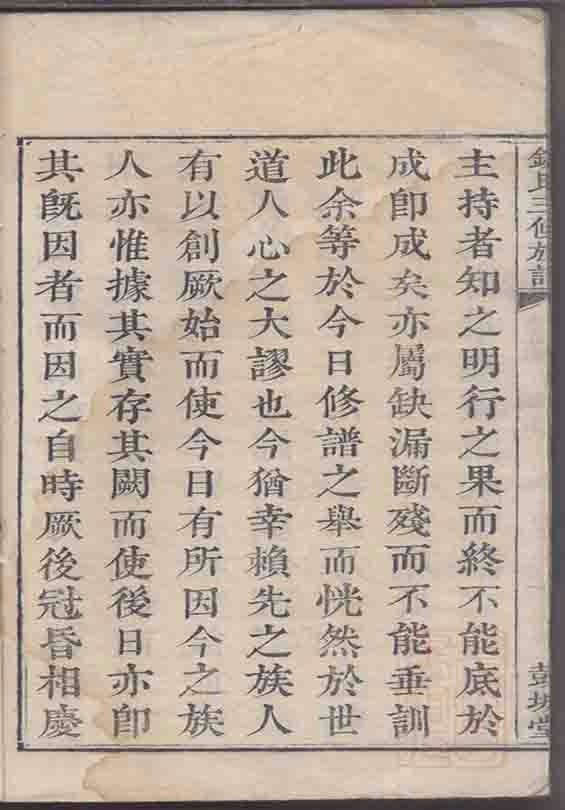 錢氏三修族譜
彭城堂
主持者知之明行之果而終不能底於
成卽成矣亦屬缺漏斷殘而不能垂訓
此余等於今日修譜之舉而恍然於世
道人心之大謬也今猶幸賴先之族人
有以創厥始而使今日有所因今之族
人亦惟據其實存其闕而使後日亦卽
其旣因者而因之自時厥後冠昏相慶